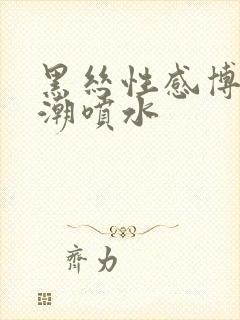 黑丝性感博
潮喷水
齐力